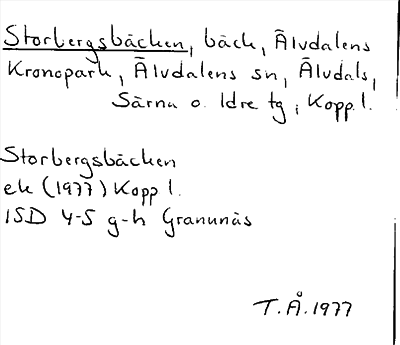 Storbergsbäcken, bäck, Älvdalens
Kronopark, Älvdalens sn, Älvdals,
Särna o. Idre tg, Kopp. l.
Storbergsbäcken
ek (1977) Kopp l.
15D 4-5 g-h Granunäs
T.Å. 1977